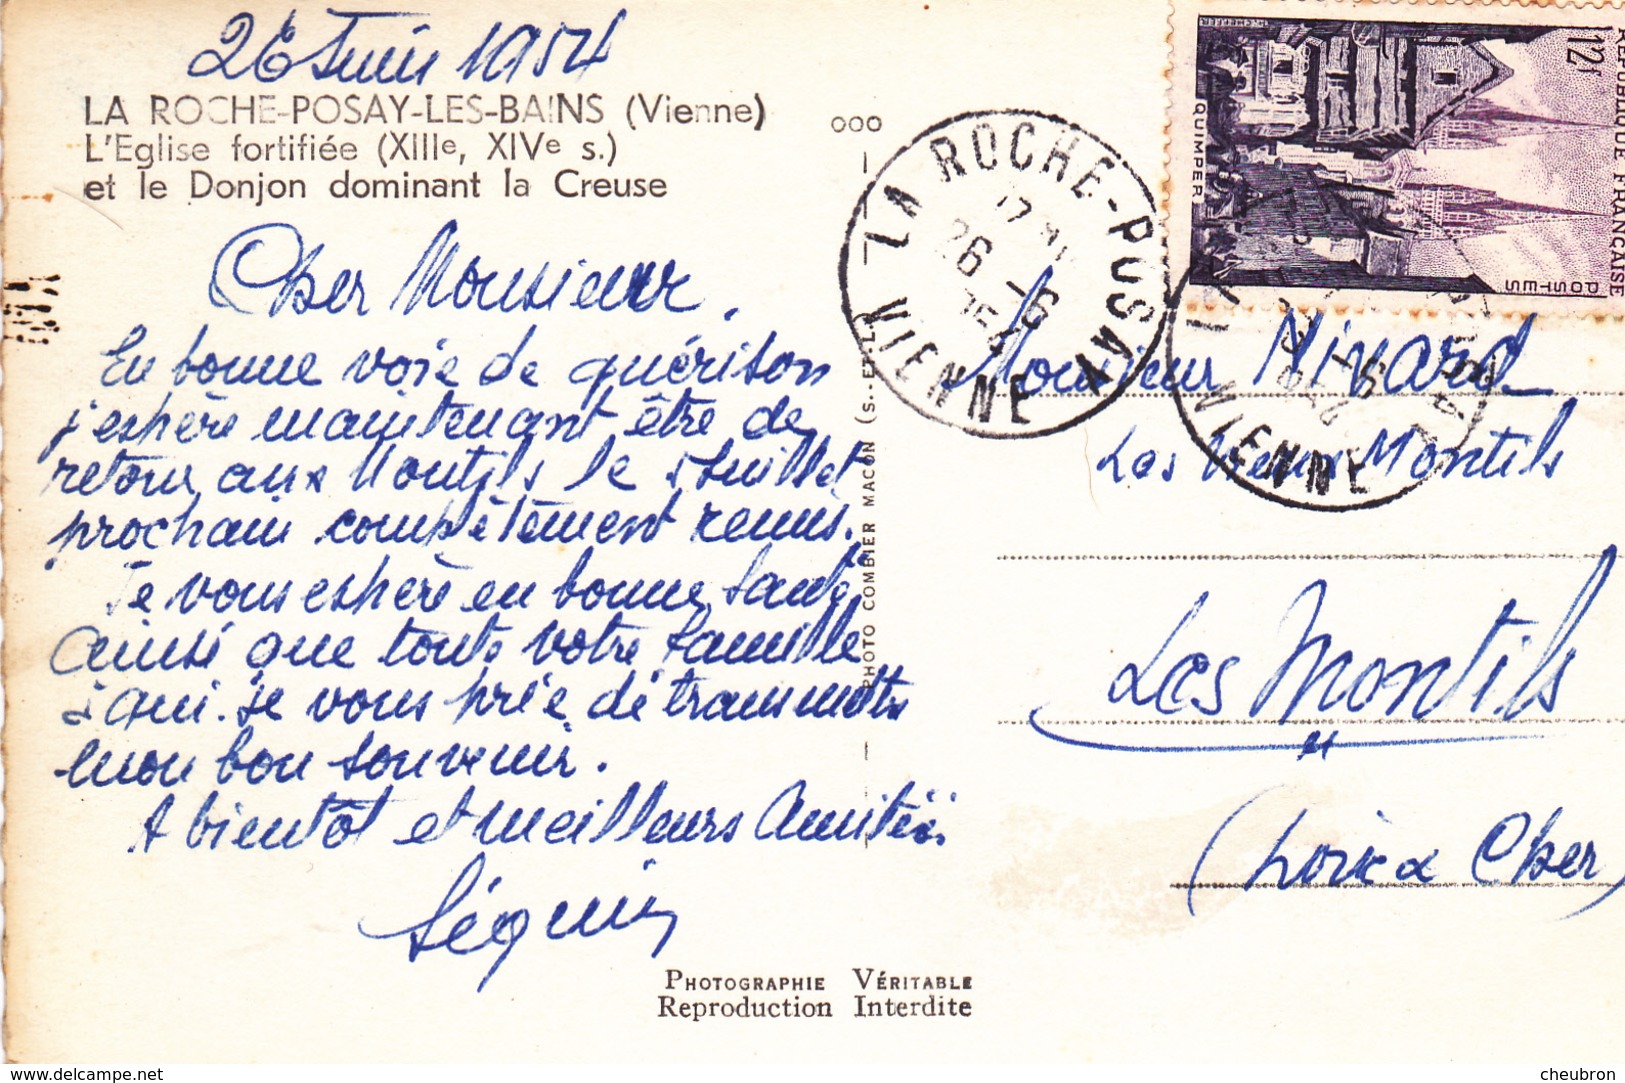 26 Juin 1954
LA ROCHE-POSAY-LES-BAINS (Vienne)
L'Eglise fortifiée (XIIIe, XIVe s.)
et le Donjon dominant la Creuse
Cher Monsieur,
En bonne voie de guérison
j'espère maintenant être de
retour aux Montils le 5 Juillet
prochain complètement remis.
Je vous espère en bonne santé
ainsi que toute votre famille
à qui je vous prie de transmettre
mon bon souvenir.
A bientôt et meilleurs Amitiés
Séguin
PHOTOGRAPHIE VÉRITABLE
Reproduction Interdite
PHOTO COMBIER MACON (S.-ET-L.)
000
LA ROCHE-POSAY
17
26 -6
1954
VIENNE
RÉPUBLIQUE FRANÇAISE
12F
POSTES
QUIMPER
VIENNE
Monsieur Nivard
Les Vieux Montils
Les Montils
(Loir & Cher)
www.delcampe.net
cheubron